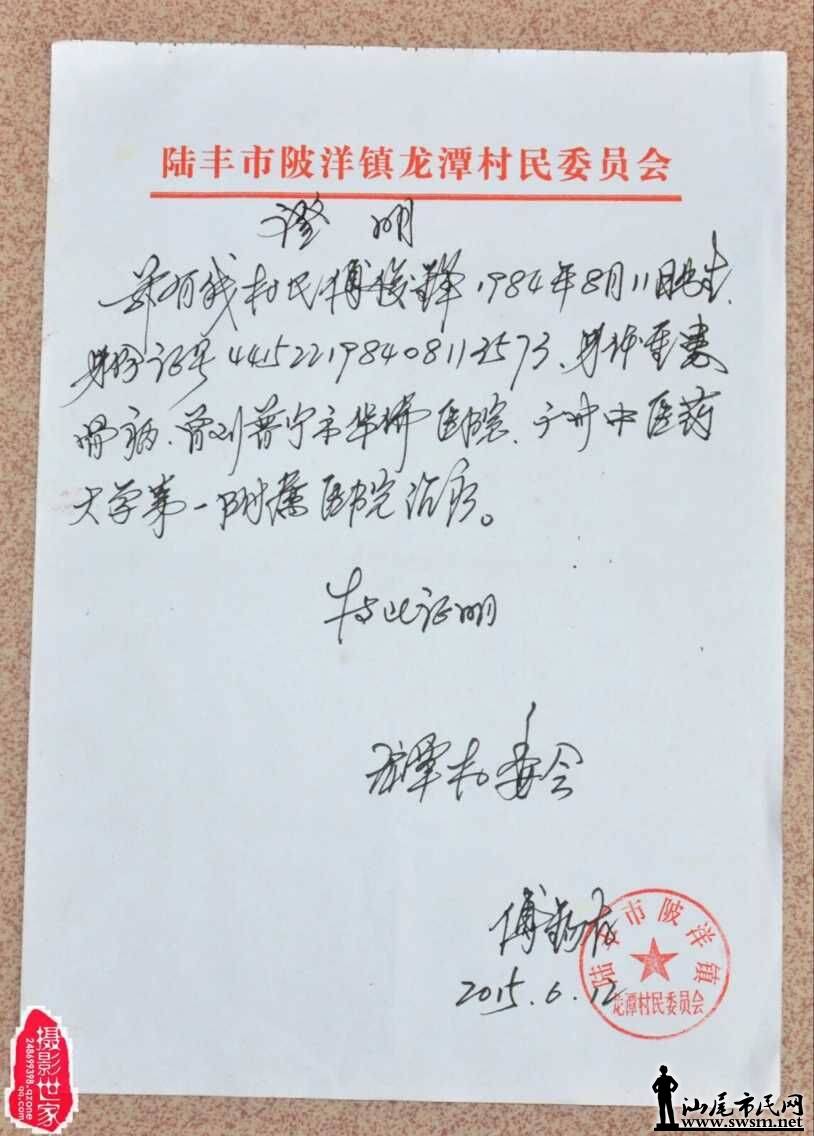 陆丰市陂洋镇龙潭村民委员会
证明
兹有我村民傅俊锋1984年8月11日出生.
身份证号441522198408112573、身体重患
骨病、曾到普宁市华侨医院、广州中医药
大学第一附属医院治疗。
特此证明
龙潭村委会
傅
2015.6.12
陆丰市陂洋镇
龙潭村民委员会
摄影世家
248699398.qzone
qq.com
汕尾市民网
www.swsm.net